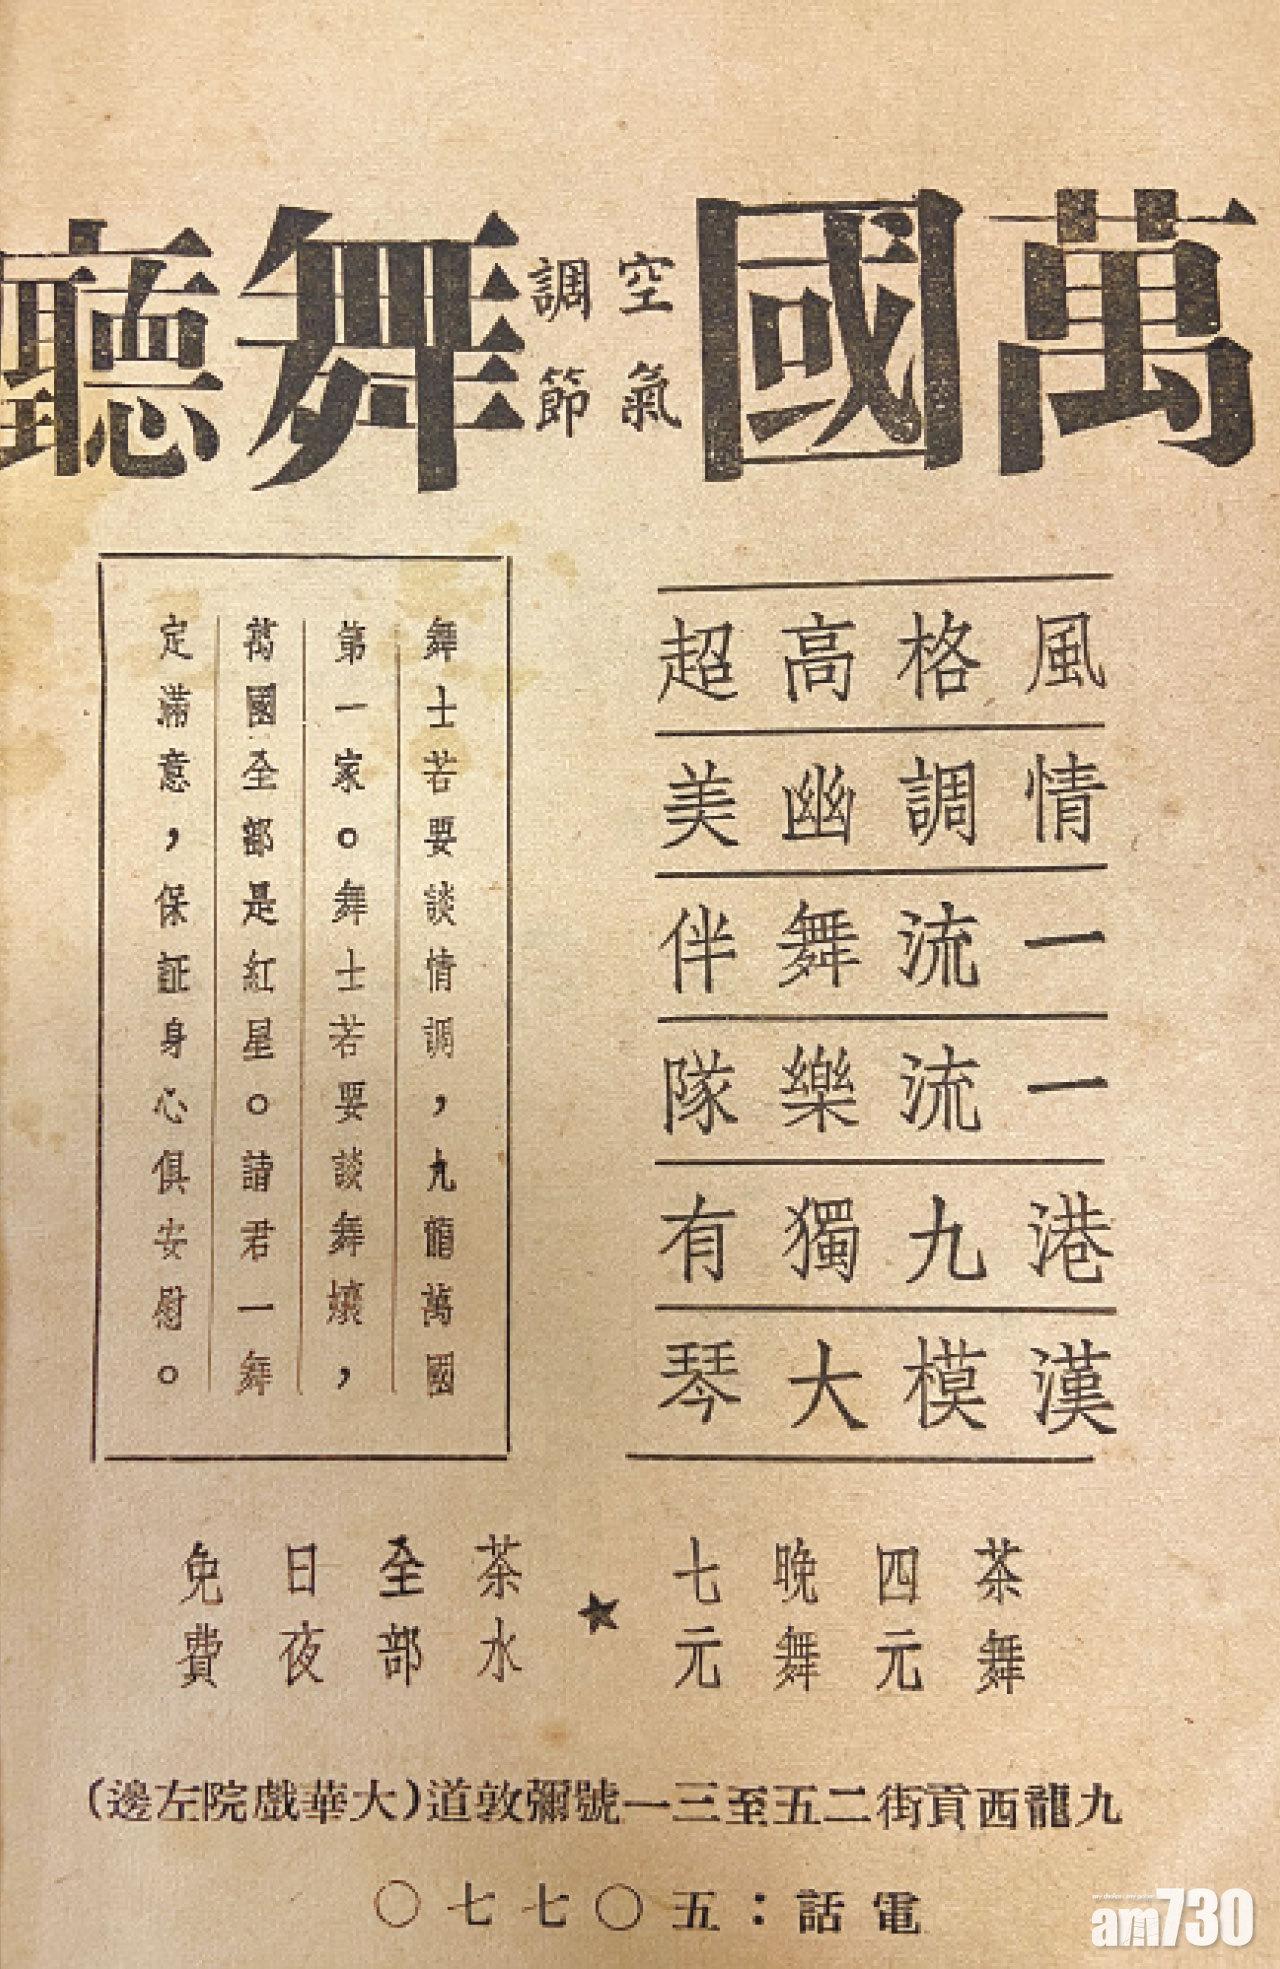 萬國 空氣調節 舞廳
風格高超
情調幽美
一流舞伴
一流樂隊
港九獨有
漢模大琴
舞士若要談情調，九龍萬國
第一家。舞士若要談舞孃，
萬國全部是紅星。請君一舞
定滿意，保証身心俱安慰。
茶舞四元晚舞七元★茶水全部日夜免費
九龍西貢街二五至三一號彌敦道(大華戲院左邊)
電話：五〇七七〇
am730